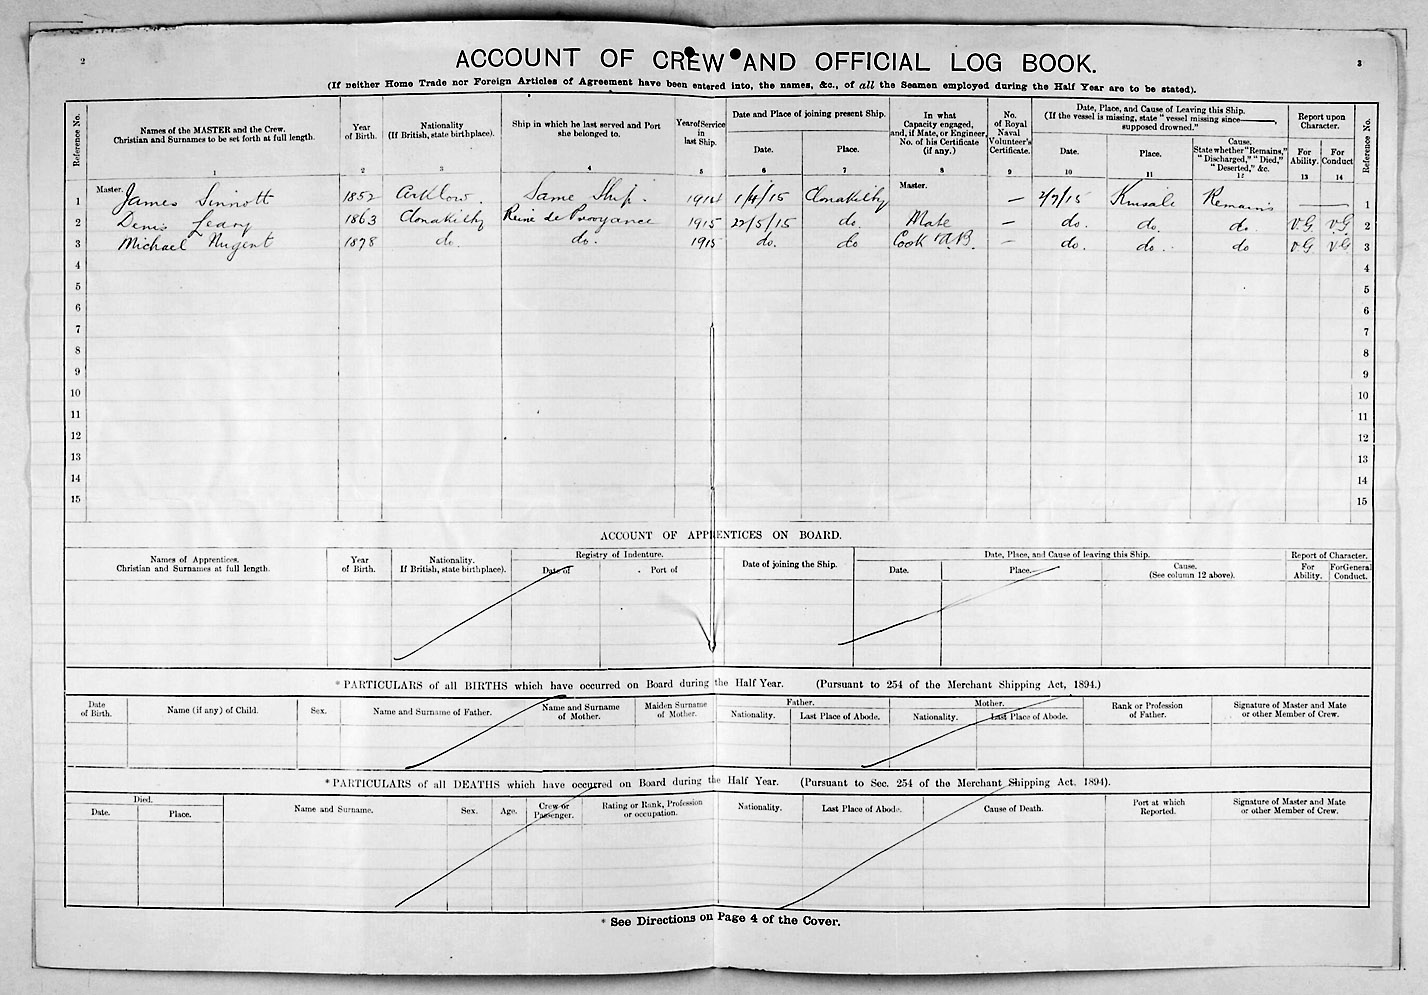 2
3
ACCOUNT OF CREW AND OFFICIAL LOG BOOK.
(If neither Home Trade nor Foreign Articles of Agreement have been entered into, the names, &c., of all the Seamen employed during the Half Year are to be stated).
Reference No.
Names of the MASTER and the Crew.
Christian and Surnames to be set forth at full length.
1
Year
of Birth.
2
Nationality
(If British, state birthplace).
3
Ship in which he last served and Port
she belonged to.
4
Year of Service
in
last Ship.
5
Date and Place of joining present Ship.
Date.
6
Place.
7
In what
Capacity engaged,
and, if Mate, or Engineer,
No. of his Certificate
(if any.)
8
No.
of Royal
Naval
Volunteer's
Certificate.
9
Date, Place, and Cause of Leaving this Ship.
(If the vessel is missing, state "vessel missing since———,
supposed drowned."
Date.
10
Place.
11
Cause.
State whether "Remains,"
"Discharged," "Died,"
"Deserted," &c.
12
Report upon
Character.
For
Ability.
13
For
Conduct
14
Reference No.
1 Master. James Sinnott 1852 Arklow. Same Ship. 1914 1/4/15 Clonakilty Master. — 2/7/15 Kinsale Remains —— 1
2 Denis Leary 1863 Clonakilty Reine de Provyance 1915 22/5/15 do. Mate — do. do. do. V.G. V.G. 2
3 Michael Nugent 1878 do. do. 1915 do. do Cook & A.B. — do. do. do V.G V.G 3
4 4
5 5
6 6
7 7
8 8
9 9
10 10
11 11
12 12
13 13
14 14
15 15
ACCOUNT OF APPRENTICES ON BOARD.
Names of Apprentices.
Christian and Surnames at full length.
Year
of Birth.
Nationality.
If British, state birthplace).
Registry of Indenture.
Date of
Port of
Date of joining the Ship.
Date, Place, and Cause of leaving this Ship.
Date.
Place.
Cause.
(See column 12 above).
Report of Character.
For
Ability.
For General
Conduct.
* PARTICULARS of all BIRTHS which have occurred on Board during the Half Year. (Pursuant to 254 of the Merchant Shipping Act, 1894.)
Date
of Birth.
Name (if any) of Child.
Sex.
Name and Surname of Father.
Name and Surname
of Mother.
Maiden Surname
of Mother.
Father.
Nationality.
Last Place of Abode.
Mother.
Nationality.
Last Place of Abode.
Rank or Profession
of Father.
Signature of Master and Mate
or other Member of Crew.
* PARTICULARS of all DEATHS which have occurred on Board during the Half Year. (Pursuant to Sec. 254 of the Merchant Shipping Act, 1894).
Died.
Date.
Place.
Name and Surname.
Sex.
Age.
Crew or
Passenger.
Rating or Rank, Profession
or occupation.
Nationality.
Last Place of Abode.
Cause of Death.
Port at which
Reported.
Signature of Master and Mate
or other Member of Crew.
* See Directions on Page 4 of the Cover.